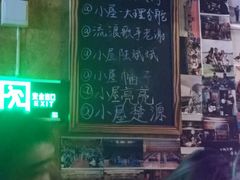 @小屋·大理分舵
@流浪歌手老谢
@小屋陈斌斌
@小屋柚子
@小屋亮亮
@小屋楚源
安全出口
EXIT